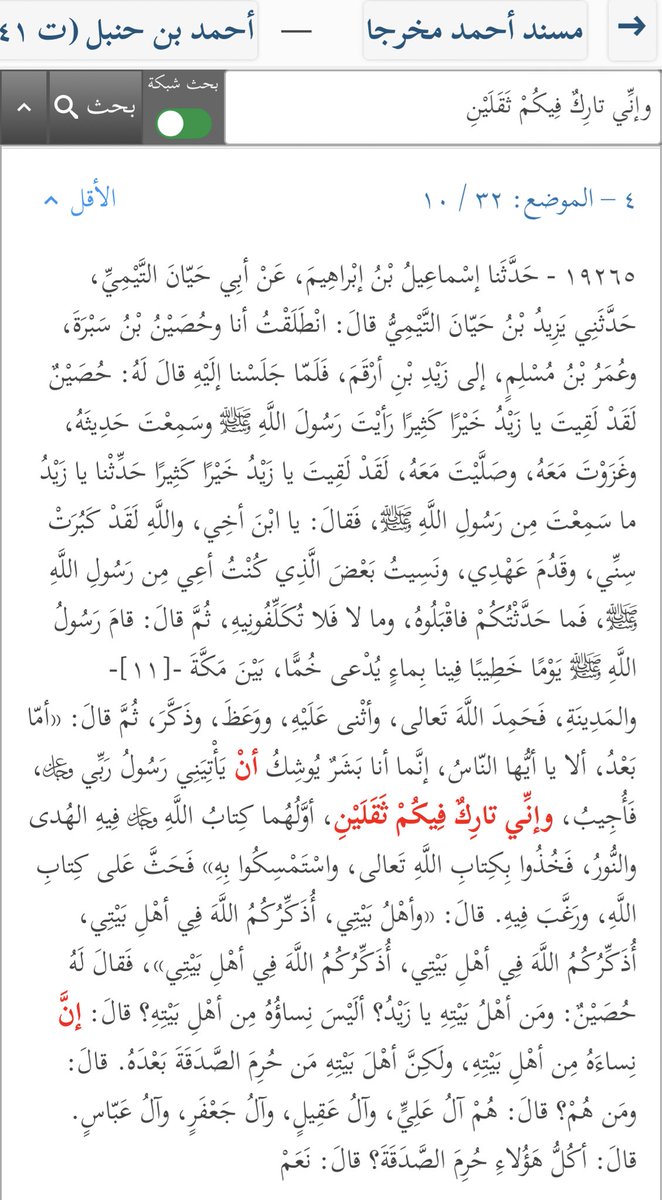 → مسند أحمد مخرجا — أحمد بن حنبل (ت ٤١
وإنِّي تارِكٌ فِيكُمْ ثَقَلَيْنِ
بحث شبكة
بحث
٤ – الموضع: ٣٢ / ١٠
الأقل
١٩٢٦٥ - حَدَّثَنا إسْماعِيلُ بْنُ إبْراهِيمَ، عَنْ أبِي حَيّانَ التَّيْمِيِّ،
حَدَّثَنِي يَزِيدُ بْنُ حَيّانَ التَّيْمِيُّ قالَ: انْطَلَقْتُ أنا وحُصَيْنُ بْنُ سَبْرَةَ،
وعُمَرُ بْنُ مُسْلِمٍ، إلى زَيْدِ بْنِ أرْقَمَ، فَلَمّا جَلَسْنا إلَيْهِ قالَ لَهُ: حُصَيْنٌ
لَقَدْ لَقِيتَ يا زَيْدُ خَيْرًا كَثِيرًا رَأيْتَ رَسُولَ اللَّهِ ﷺ وسَمِعْتَ حَدِيثَهُ،
وغَزَوْتَ مَعَهُ، وصَلَّيْتَ مَعَهُ، لَقَدْ لَقِيتَ يا زَيْدُ خَيْرًا كَثِيرًا حَدِّثْنا يا زَيْدُ
ما سَمِعْتَ مِن رَسُولِ اللَّهِ ﷺ، فَقالَ: يا ابْنَ أخِي، واللَّهِ لَقَدْ كَبُرَتْ
سِنِّي، وقَدُمَ عَهْدِي، ونَسِيتُ بَعْضَ الَّذِي كُنْتُ أعِي مِن رَسُولِ اللَّهِ
ﷺ، فَما حَدَّثْتُكُمْ فاقْبَلُوهُ، وما لا فَلا تُكَلِّفُونِيهِ، ثُمَّ قالَ: قامَ رَسُولُ
اللَّهِ ﷺ يَوْمًا خَطِيبًا فِينا بِماءٍ يُدْعى خُمًّا، بَيْنَ مَكَّةَ -[١١]-
والمَدِينَةِ، فَحَمِدَ اللَّهَ تَعالى، وأثْنى عَلَيْهِ، ووَعَظَ، وذَكَّرَ، ثُمَّ قالَ: «أمّا
بَعْدُ، ألا يا أيُّها النّاسُ، إنَّما أنا بَشَرٌ يُوشِكُ أنْ يَأْتِيَنِي رَسُولُ رَبِّي ﷿،
فَأُجِيبُ، وإنِّي تارِكٌ فِيكُمْ ثَقَلَيْنِ، أوَّلُهُما كِتابُ اللَّهِ ﷿ فِيهِ الهُدى
والنُّورُ، فَخُذُوا بِكِتابِ اللَّهِ تَعالى، واسْتَمْسِكُوا بِهِ» فَحَثَّ عَلى كِتابِ
اللَّهِ، ورَغَّبَ فِيهِ. قالَ: «وأهْلُ بَيْتِي، أُذَكِّرُكُمُ اللَّهَ فِي أهْلِ بَيْتِي،
أُذَكِّرُكُمُ اللَّهَ فِي أهْلِ بَيْتِي، أُذَكِّرُكُمُ اللَّهَ فِي أهْلِ بَيْتِي»، فَقالَ لَهُ
حُصَيْنٌ: ومَن أهْلُ بَيْتِهِ يا زَيْدُ؟ ألَيْسَ نِساؤُهُ مِن أهْلِ بَيْتِهِ؟ قالَ: إنَّ
نِساءَهُ مِن أهْلِ بَيْتِهِ، ولَكِنَّ أهْلَ بَيْتِهِ مَن حُرِمَ الصَّدَقَةَ بَعْدَهُ. قالَ:
ومَن هُمْ؟ قالَ: هُمْ آلُ عَلِيٍّ، وآلُ عَقِيلٍ، وآلُ جَعْفَرٍ، وآلُ عَبّاسٍ.
قالَ: أكُلُّ هَؤُلاءِ حُرِمَ الصَّدَقَةَ؟ قالَ: نَعَمْ